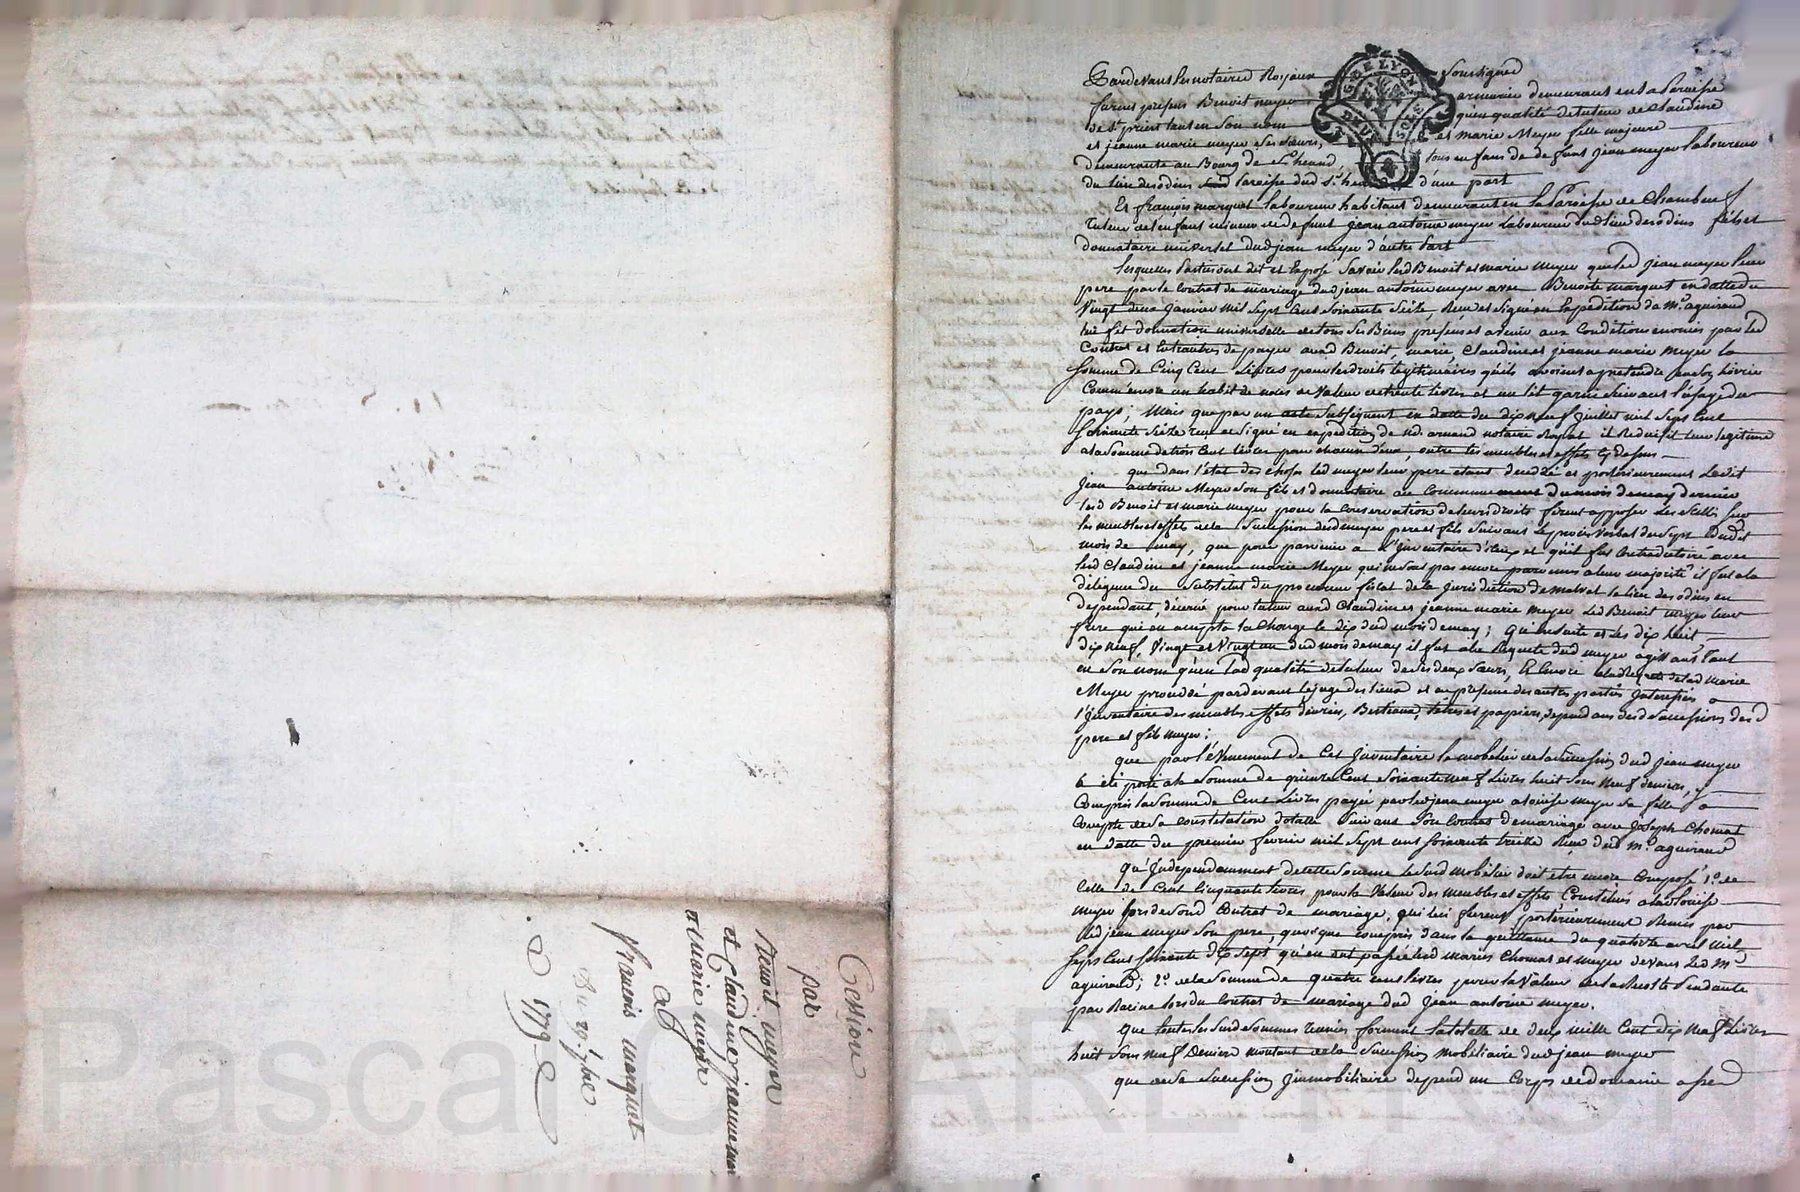 Cession
par
Benoit meyer
et Claudine, jeanne marie
et Marie meyer
a
François marquet
Du 29 7bre
1779
G. DE LYON
Pardevant les notaires Royaux soussignés
furent presens Benoit meyer armurier demeurant en la Paroisse
de St priest tant en son nom qu'en qualité de tuteur de Claudine
et jeanne marie meyer ses sœurs, et marie Meyer fille majeure
demeurante au Bourg de St heand, tous enfans de defunt jean meyer laboureur
du lieu desodins Paroisse dud St heand d'une part
Et françois marquet laboureur habitant demeurant en la Paroisse de Chambeuf
Tuteur de l'enfant mineur de defunt jean antoine meyer laboureur dud lieu desodins fils et
donnataire universel dud jean meyer d'autre Part
Lesquelles Parties ont dit et Exposé Savoir lesd Benoit et marie meyer que led jean meyer leur
pere par le Contrat de mariage dud jean antoine meyer avec Benoite marquet en datte du
Vingt deux Janvier mil Sept Cens Soixante Seize, Receu et signé en Expedition da Me aguiraud
lui fit donnation universelle de tous ses Biens presens et avenir aux Conditions enoncées par led
Contrat et entr'autres de payer auxd Benoit, marie, Claudine et jeanne marie meyer la
somme de Cinq Cens Livres pour les droits legitimaires qu'ils avoient a pretendre
Comm'encore un habit de noces de Valeur de trente livres et un lit garni suivant l'usage du
pays, Mais que par un acte subséquent en datte du dix neuf juillet mil Sept Cens
Soixante Seize reçu et Signé en expedition de Me arnaud notaire Royal il Reduisit leur legitime
a la Somme de trois Cens livres pour chacun d'eux, outre les meubles et effets cy dessus
que dans l'état des choses led meyer leur pere etant decedé et posterieurement Ledit
Jean antoine Meyer son fils et donnataire au Commencement du mois de may dernier
lesd Benoit et marie meyer pour la Conservation de leurs droits firent apposer Les Scellés sur
les meubles et effets de la Succession desd meyer pere et fils Suivant le procès Verbal du Sept Dudit
mois de may, que pour parvenir a L'Inventaire d'iceux et qu'il fut Contradictoire avec
lesd Claudine et jeanne marie Meyer qui ne sont pas encore parvenues a leur majorité il fut a la
diligence du Substitut du procureur fiscal de la jurisdiction de Malval le lieu desodins en
dependant, décerné pour tuteur auxd Claudine et jeanne marie meyer Led Benoit meyer leur
frere qui en accepta la Charge le dix dud mois de may; Qu'ensuite et les dix huit
dix neuf, Vingt et Vingt un dud mois de may il fut a la Requete dud meyer agissant Tant
en son nom qu'en lad qualité de tuteur de ses deux Sœurs, et encore de lad Marie
Meyer procedé pardevant le juge des lieux et en presence des autres parties Interessées a
l'Inventaire des meubles effets denrées, Bestiaux, titres et papiers, dependans desd Successions desd
pere et fils meyer;
que par l'événement de Cet Inventaire le mobilier de la Succession dud jean meyer
a été porté a la Somme de quinze Cens Soixante neuf Livres huit Sous neuf deniers, y
Compris la Somme de Cent Livres payée par led jean meyer a louise meyer sa fille a
Compte de sa Constitution dotalle suivant Son Contrat de mariage avec Joseph Chomat
en datte du premier fevrier mil Sept Cens Soixante treize Reçu dud Me aguiraud
Qu'Independamment de cette Somme le susd mobilier doit être encore Composé 1o. de
Celle de Cent Cinquante livres pour la Valeur des meubles et effets Constitués a lad louise
meyer lors de Sond Contrat de mariage, qui lui furent postérieurement Remis par
led jean meyer Son pere, quoique compris dans la quittance du quatorze avril mil
Sept Cens Soixante dix sept qu'en ont passée lesd mariés Chomat et meyer devant Led Me
aguiraud; 2o. de la Somme de quatre Cens livres pour la Valeur de la Recolte pendante
par Racine lors du Contrat de mariage dud Jean antoine meyer.
Que toutes les susd Sommes reunies forment la totallité de deux mille Cent dix neuf Livres
huit Sous neuf Deniers montant de la Succession Mobiliaire dud jean meyer
que de la Succession Immobiliaire depend un Corps de domaine assez
Pascal CHAREYRON